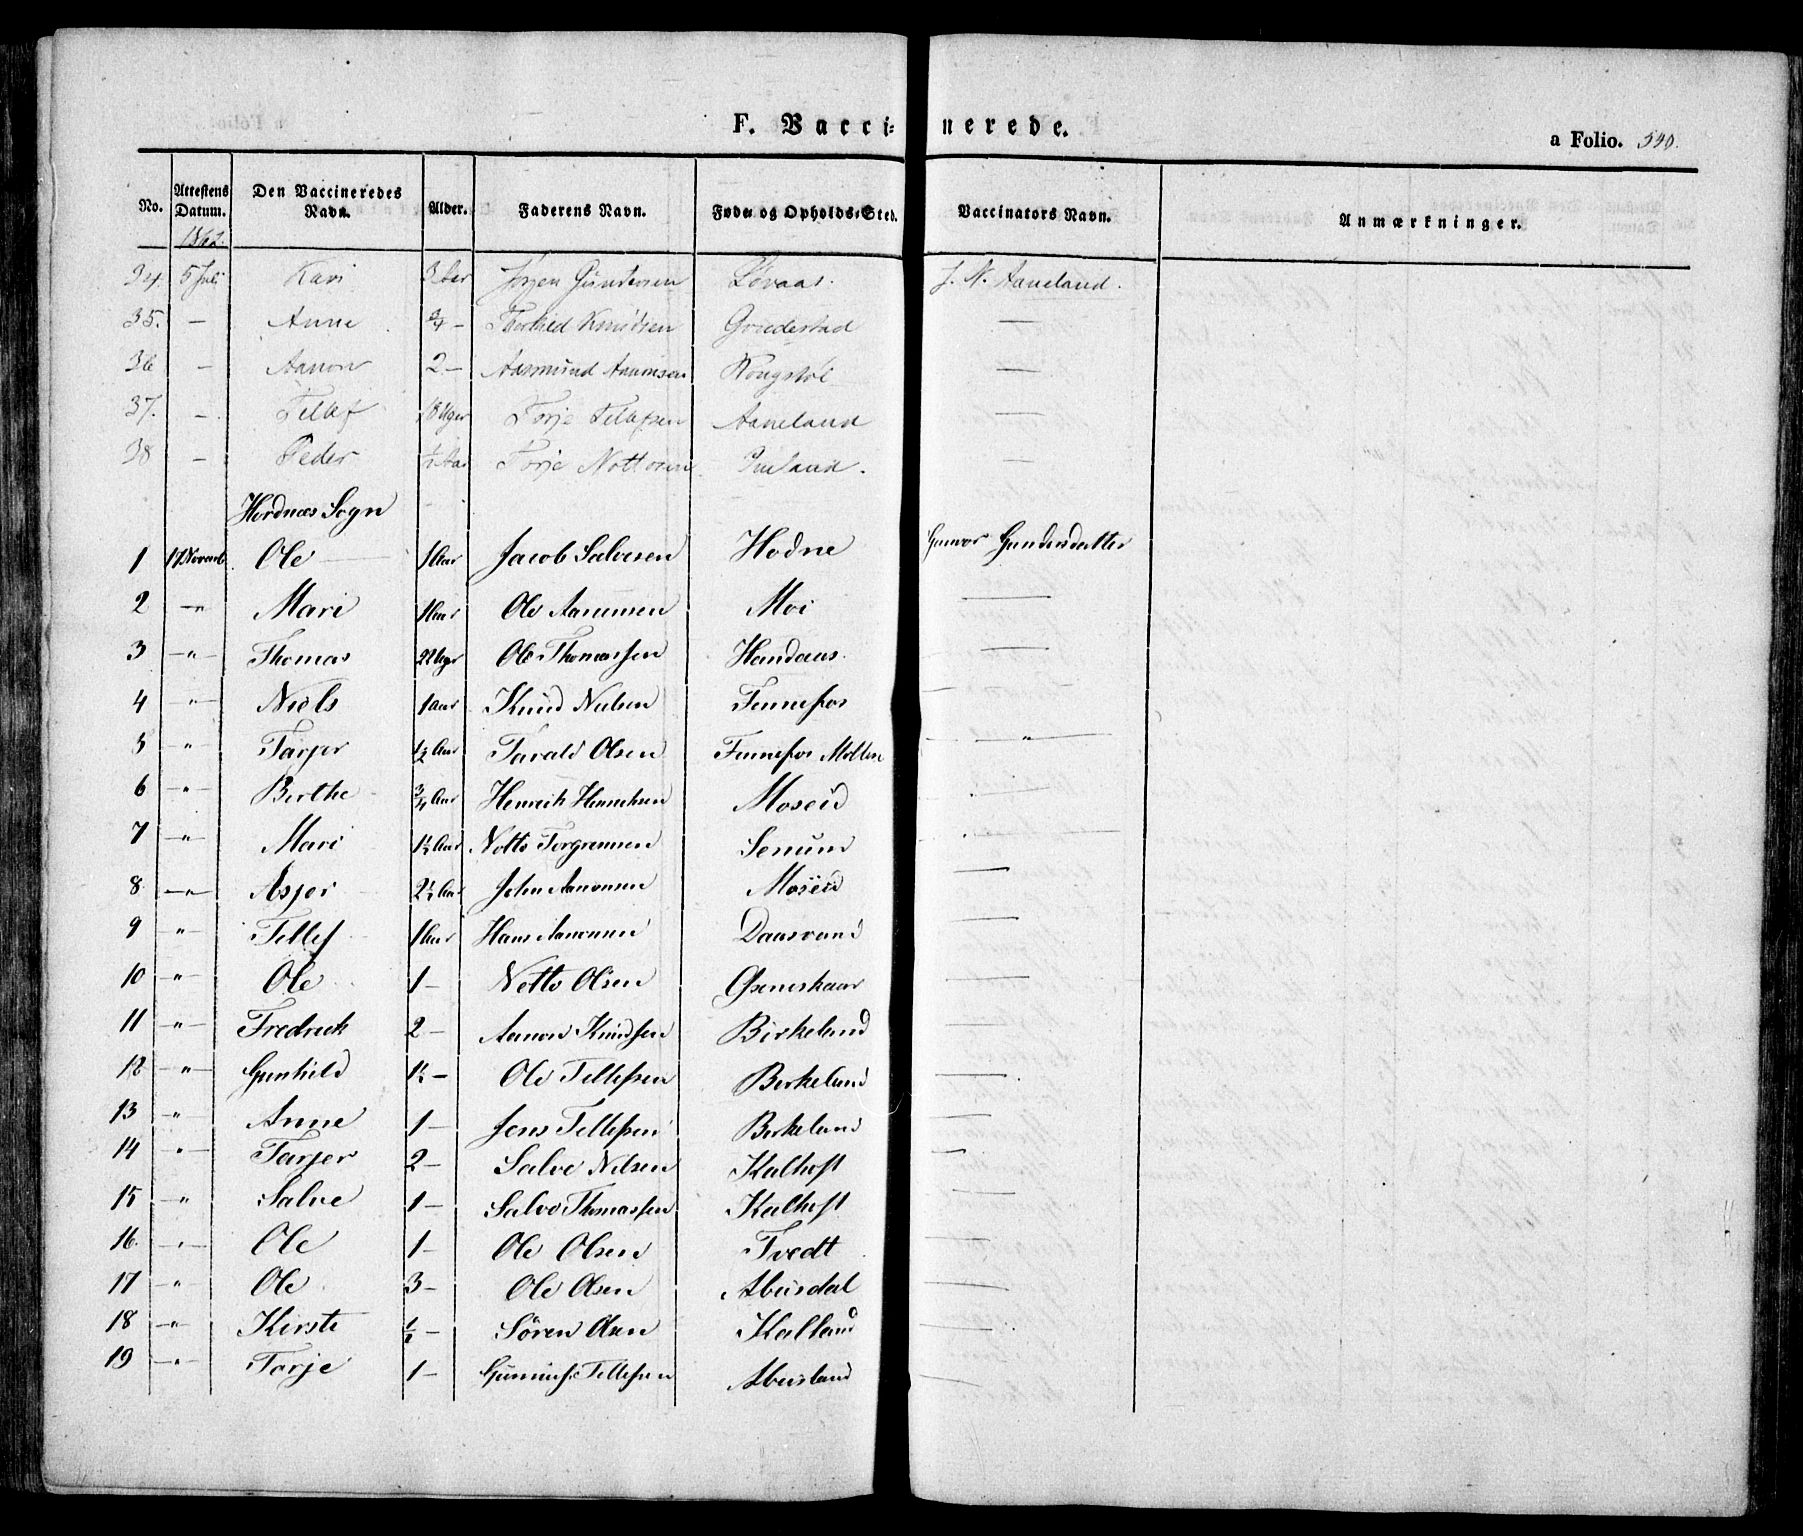 F. Vaccinerede.
a Folio. 540.
No. Attestens Datum. Den Vaccineredes Navn. Alder. Faderens Navn. Føde- og Opholds-Sted. Vaccinators Navn. Anmærkninger.
1862.
34. 5 Juli Kari 3 Aar Jørgen Gundersen Løvaas. J. N. Aaneland.
35. — Anne 3/4 — Therkild Knudsen —
36 — Aanon 2 — Aasmund Aanonsen —
37. — Tellef 18 Uger Torje Tellefsen Aaneland —
38 — Peder 1/2 Aar Torje Nottosen —
Hordnæs Sogn
1 17 Novemb. Ole 1 Aar Jacob Salvesen Hodne Gunvor Gundersdatter
2 —"— Mari 1 Aar Ole Aanunsen Moi —
3 —"— Thomas 22 Uger Ole Thomassen Haadaas. —
4 —"— Niels 1 Aar Knud Nielsen Fennefos —
5 " Tarjer 1 1/2 Aar Tarald Olsen Fennefos —"—
6 —"— Berthe 3/4 Aar Henrik Henriksen Moseid —
7 —"— Mari 1 1/2 Aar Notto Torgrimsen Senum —
8 —"— Asjer 2 1/2 Aar John Aanonsen Moseid —
9 " Tellef 1 Aar Hans Aanonsen Daasvand —
10 —"— Ole 1 — Notto Olsen —
11 —"— Fredrick 2 — Aanon Knudsen Birkeland —
12 —"— Gunhild 1 1/2 — Ole Tellefsen Birkeland —
13 —"— Anne 1 — Jens Tellefsen Birkeland —
14 —"— Tarjer 2 — Salve Nilsen Kalhoft —
15 —"— Salve 1 — Salve Thomassen Kalhoft —
16. —"— Ole 1 — Ole Olsen Tvedt —
17 —"— Ole 3 — Ole Olsen Abusdal —
18 —"— Kirste 1/2 — Sören Olsen Kalland —
19 —"— Torje 1 — Tellefsen Abusland —